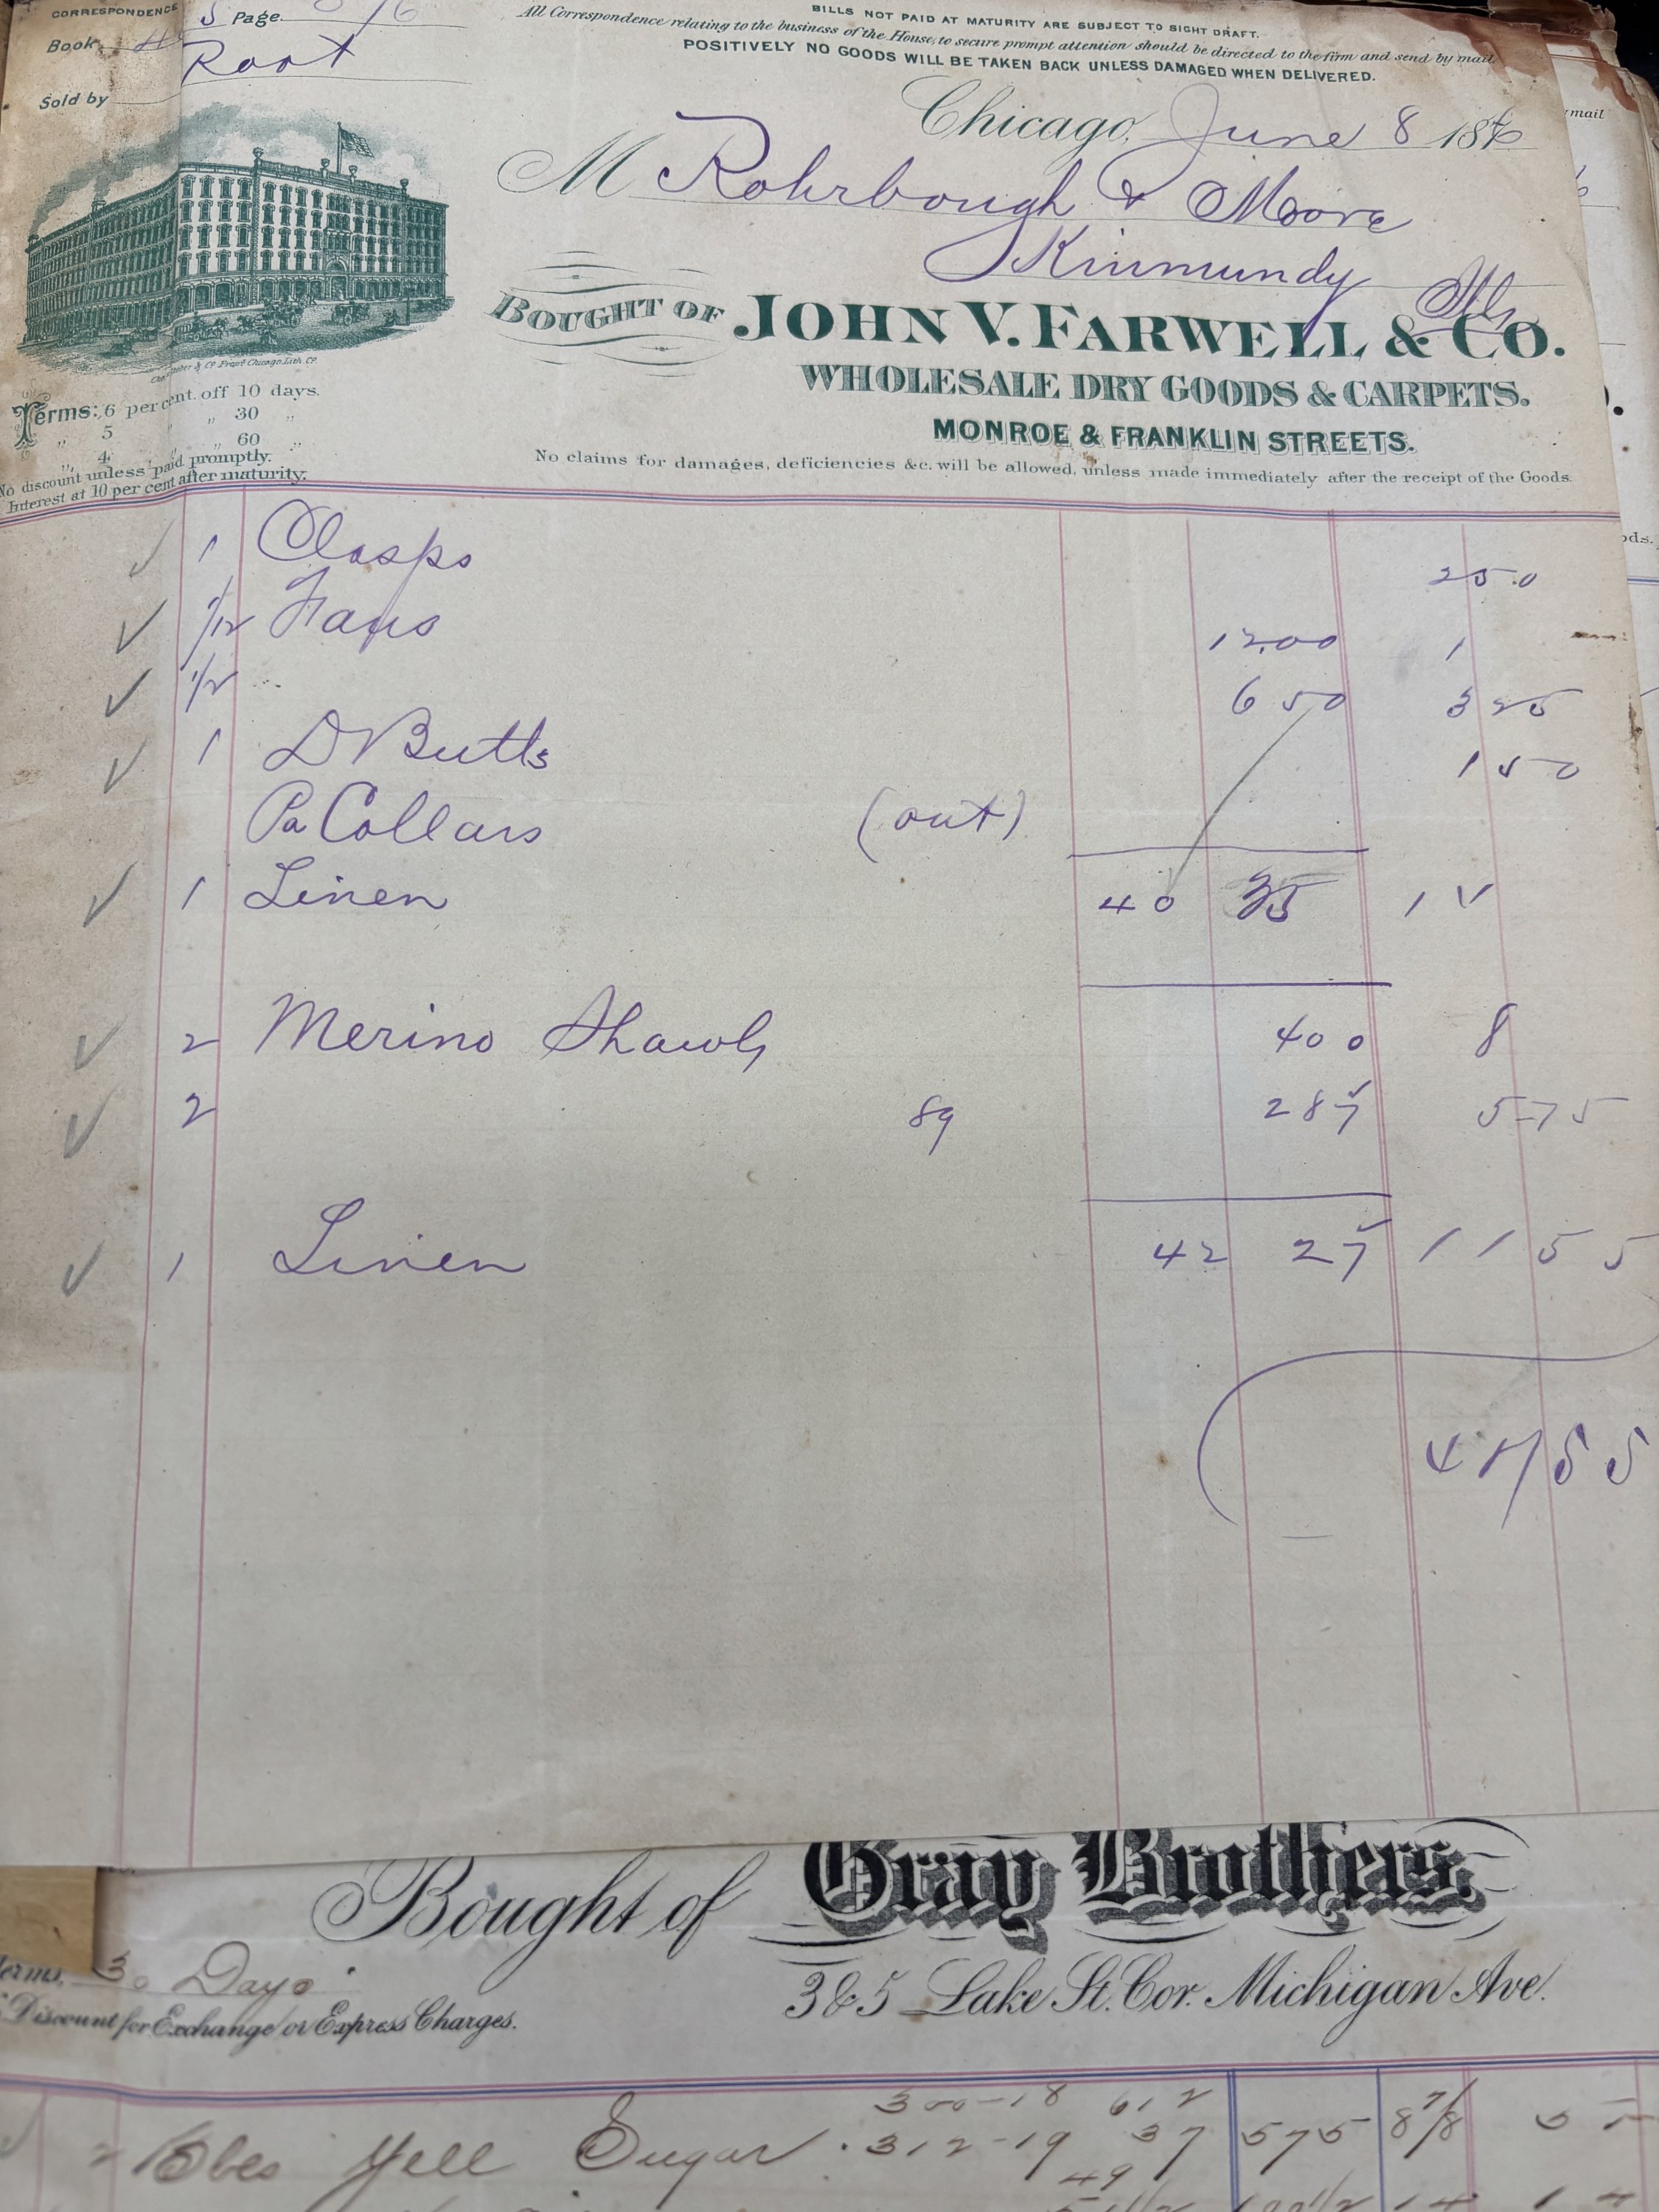 CORRESPONDENCE
Book. 5 Page. 6
Root
Sold by
BILLS NOT PAID AT MATURITY ARE SUBJECT TO SIGHT DRAFT.
All Correspondence relating to the business of the House, to secure prompt attention should be directed to the firm and send by mail
POSITIVELY NO GOODS WILL BE TAKEN BACK UNLESS DAMAGED WHEN DELIVERED.
mail
Chicago, June 8 1876
M Rohrbough & Moore
Kinmundy Ills
BOUGHT OF JOHN V. FARWELL & CO.
WHOLESALE DRY GOODS & CARPETS.
MONROE & FRANKLIN STREETS.
Terms: 6 per cent. off 10 days.
" 5 " " 30 "
" 4 " " 60 "
No discount unless paid promptly.
Interest at 10 per cent after maturity.
No claims for damages, deficiencies &c. will be allowed, unless made immediately after the receipt of the Goods.
✓ 1 Clasps 2 50
✓ 1/12 Fans 12.00 1
✓ 1/2 " 6 50 3 25
✓ 1 D Butts 1 50
Pa Collars (out)
✓ 1 Linen 40 35 14
✓ 2 Merino Shawls 400 8
✓ 2 89 287 5 75
✓ 1 Linen 42 27 11 55
47 55
Bought of Gray Brothers.
Terms, 30 Days
Discount for Exchange or Express Charges.
3 & 5 Lake St. Cor. Michigan Ave.
300-18 612
2 Bbls Yell Sugar. 312-19 37 575 8 7/8
49